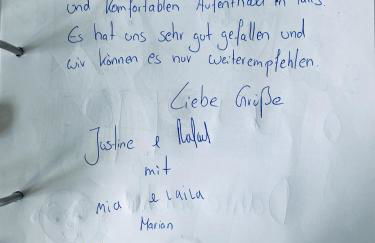 und komfortablen Aufenthalt in
Es hat uns sehr gut gefallen und
wir können es nur weiterempfehlen.
Liebe Grüße
Justine & Rafael
mit
Mia & Laila
Marian